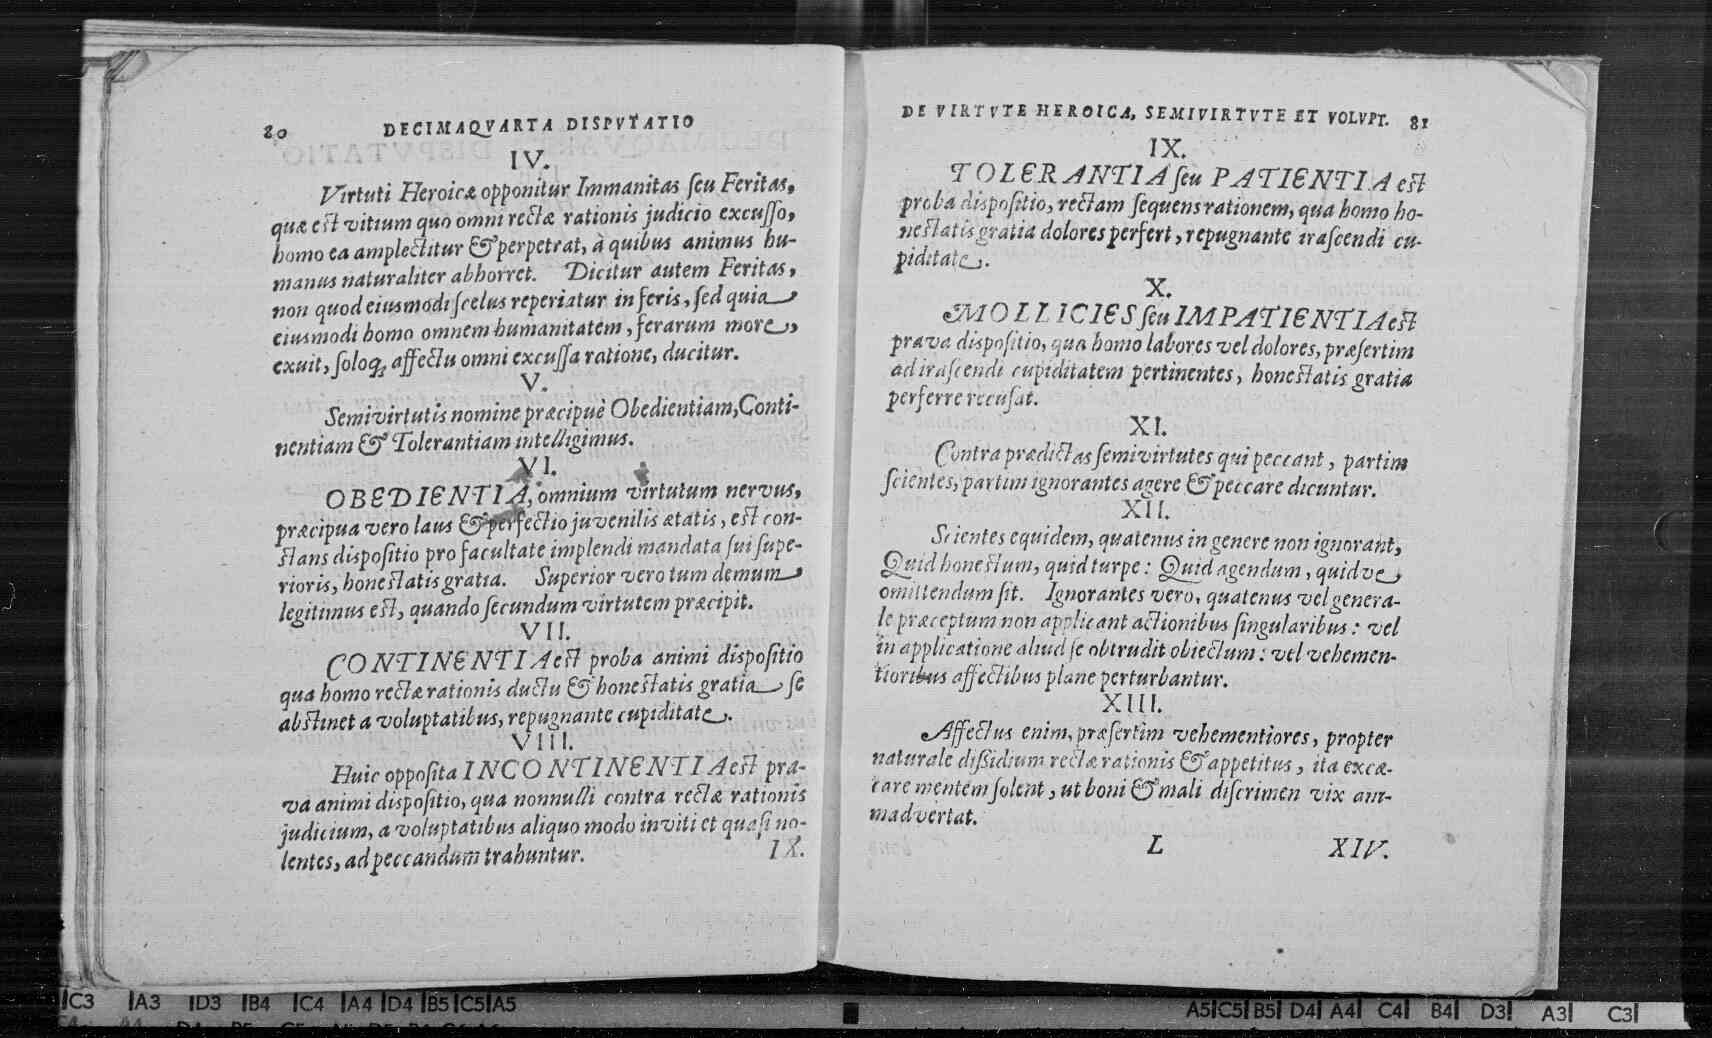 80 DECIMAQVARTA DISPVTATIO
IV.
Virtuti Heroicæ opponitur Immanitas ſeu Feritas,
quæ eſt vitium quo omni rectæ rationis judicio excuſſo,
homo ea amplectitur & perpetrat, à quibus animus hu-
manus naturaliter abhorret. Dicitur autem Feritas,
non quod eiusmodi ſcelus reperiatur in feris, ſed quia
eiusmodi homo omnem humanitatem, ferarum more,
exuit, ſoloq; affectu omni excuſſa ratione, ducitur.
V.
Semivirtutis nomine præcipuè Obedientiam, Conti-
nentiam & Tolerantiam intelligimus.
VI.
OBEDIENTIA, omnium virtutum nervus,
præcipua vero laus & perfectio juvenilis ætatis, eſt con-
ſtans dispoſitio pro facultate implendi mandata ſui ſupe-
rioris, honeſtatis gratia. Superior vero tum demum
legitimus eſt, quando ſecundum virtutem præcipit.
VII.
CONTINENTIA eſt proba animi dispoſitio
qua homo rectæ rationis ductu & honeſtatis gratia ſe
abſtinet a voluptatibus, repugnante cupiditate.
VIII.
Huic oppoſita INCONTINENTIA eſt pra-
va animi dispoſitio, qua nonnulli contra rectæ rationis
judicium, a voluptatibus aliquo modo inviti et quaſi no-
lentes, ad peccandum trahuntur.
IX.
DE VIRTVTE HEROICA, SEMIVIRTVTE ET VOLVPT. 81
IX.
TOLERANTIA ſeu PATIENTIA eſt
proba dispoſitio, rectam ſequens rationem, qua homo ho-
neſtatis gratia dolores perfert, repugnante iraſcendi cu-
piditate.
X.
MOLLICIES ſeu IMPATIENTIA eſt
prava dispoſitio, qua homo labores vel dolores, præſertim
ad iraſcendi cupiditatem pertinentes, honeſtatis gratia
perferre recuſat.
XI.
Contra prædictas ſemivirtutes qui peccant, partim
ſcientes, partim ignorantes agere & peccare dicuntur.
XII.
Scientes equidem, quatenus in genere non ignorant,
Quid honeſtum, quid turpe: Quid agendum, quidve
omittendum ſit. Ignorantes vero, quatenus vel genera-
le præceptum non applicant actionibus ſingularibus: vel
in applicatione aliud ſe obtrudit obiectum: vel vehemen-
tioribus affectibus plane perturbantur.
XIII.
Affectus enim, præſertim vehementiores, propter
naturale diſſidium rectæ rationis & appetitus, ita excæ-
care mentem ſolent, ut boni & mali diſcrimen vix ani-
madvertat.
L XIV.
C3 A3 D3 B4 C4 A4 D4 B5 C5 A5
A5 C5 B5 D4 A4 C4 B4 D3 A3 C3